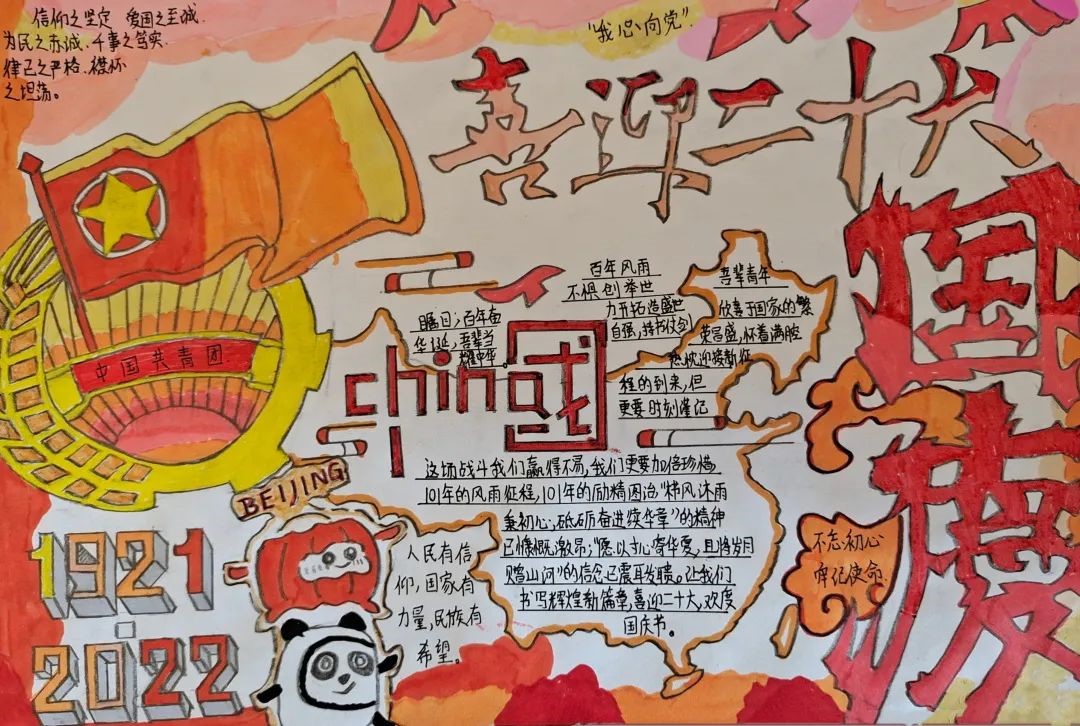 信仰之坚定 爱国之至诚
为民之赤诚、干事之笃实
律己之严格、襟怀
之坦荡。
"我心向党"
喜迎二十大
国庆
中国共青团
百年风雨
不惧创举世
力并拓造盛世
自强，持书仗剑
瞩目；百年奋
华诞，吾辈当
耀中华。
吾辈青年
欣喜于国家的繁
荣昌盛，怀着满腔
热忱迎接新征
程的到来，但
更要时刻谨记
china
国
这场战斗我们赢得不易，我们更要加倍珍惜
101年的风雨征程，101年的励精图治"栉风沐雨
秉初心，砥砺奋进续华章"的精神
已慷慨激昂；"愿以寸心寄华夏，且将岁月
赠山河"的信念已震耳发聩。让我们
书写辉煌新篇章，喜迎二十大，欢度
国庆节。
BEIJING
人民有信
仰，国家有
力量，民族有
希望。
不忘初心
牢记使命
1921
2022